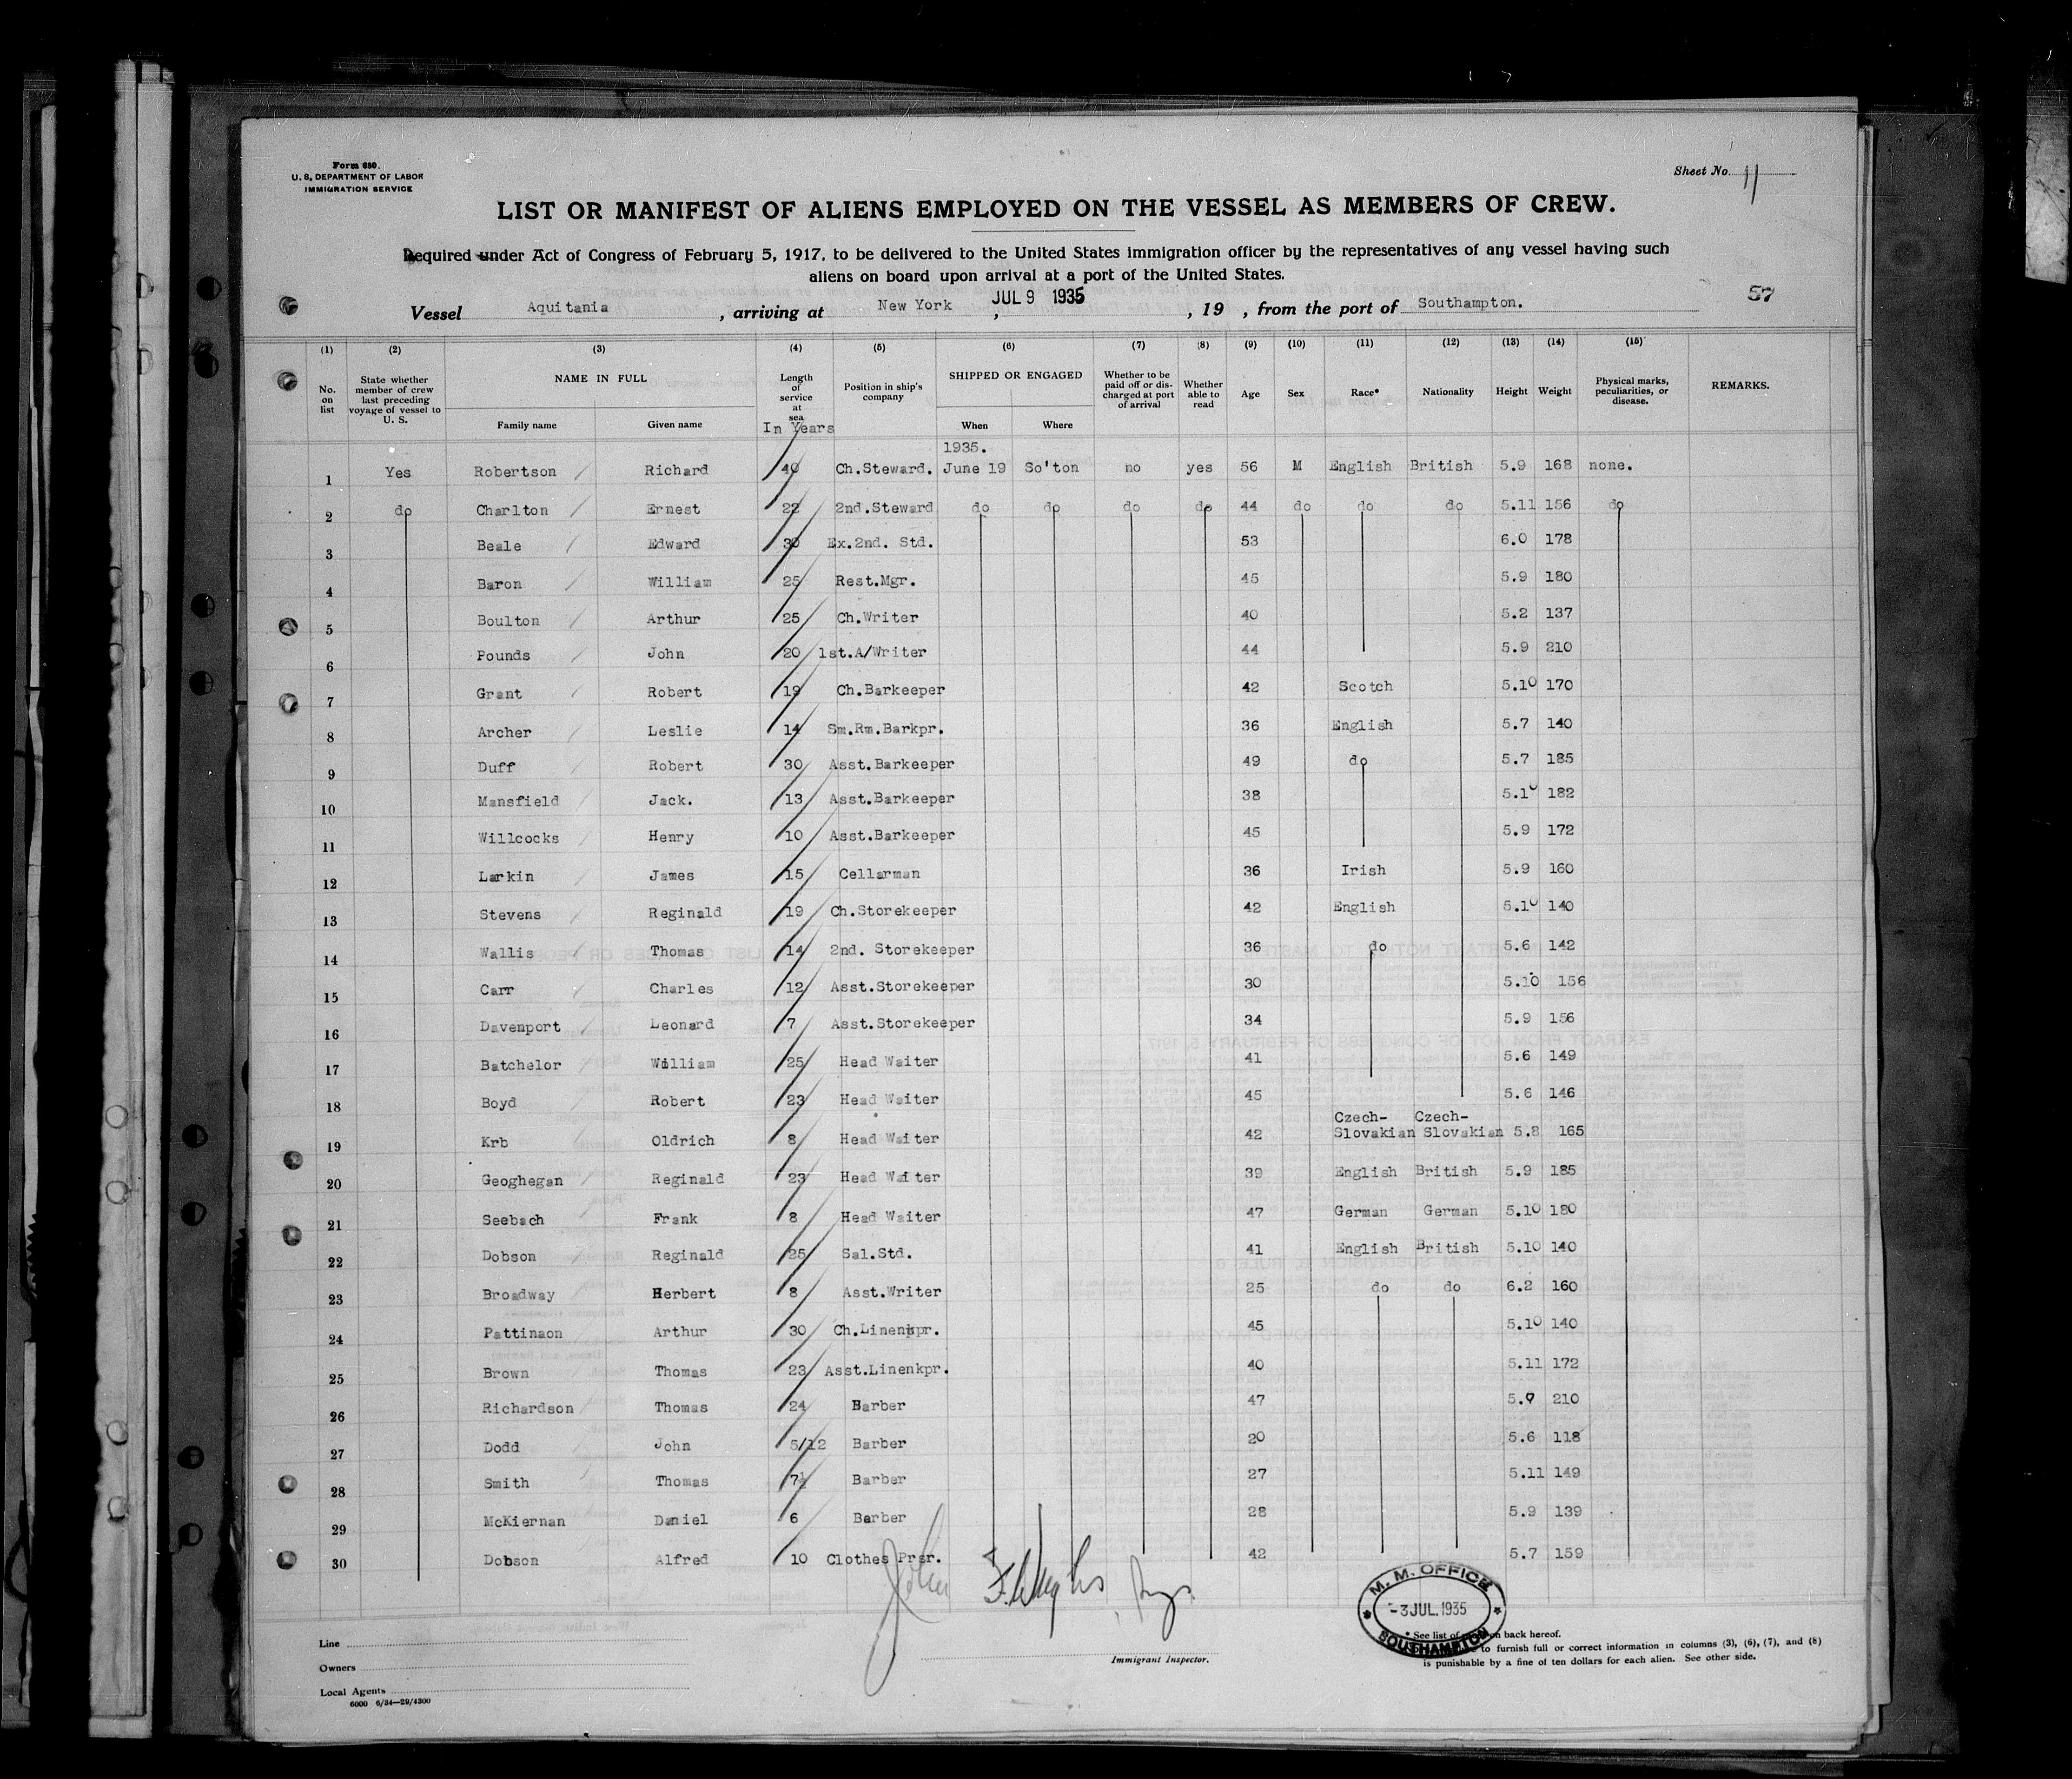 Form 680.
U. S. DEPARTMENT OF LABOR
IMMIGRATION SERVICE
Sheet No. 11
LIST OR MANIFEST OF ALIENS EMPLOYED ON THE VESSEL AS MEMBERS OF CREW.
Required under Act of Congress of February 5, 1917, to be delivered to the United States immigration officer by the representatives of any vessel having such
aliens on board upon arrival at a port of the United States.
Vessel Aquitania, arriving at New York, JUL 9 1935, 19 , from the port of Southampton. 57
(1) (2) (3) (4) (5) (6) (7) (8) (9) (10) (11) (12) (13) (14) (15)
No. on list State whether member of crew last preceding voyage of vessel to U. S. NAME IN FULL Family name Given name Length of service at sea In Years Position in ship's company SHIPPED OR ENGAGED When Where Whether to be paid off or discharged at port of arrival Whether able to read Age Sex Race* Nationality Height Weight Physical marks, peculiarities, or disease. REMARKS.
1935.
1 Yes Robertson Richard 40 Ch.Steward. June 19 So'ton no yes 56 M English British 5.9 168 none.
2 do Charlton Ernest 22 2nd.Steward do do do do 44 do do do 5.11 156 do
3 Beale Edward 30 Ex.2nd. Std. 53 6.0 178
4 Baron William 25 Rest.Mgr. 45 5.9 180
5 Boulton Arthur 25 Ch.Writer 40 5.2 137
6 Pounds John 20 1st.A/Writer 44 5.9 210
7 Grant Robert 19 Ch.Barkeeper 42 Scotch 5.10 170
8 Archer Leslie 14 Sm.Rm.Barkpr. 36 English 5.7 140
9 Duff Robert 30 Asst.Barkeeper 49 do 5.7 185
10 Mansfield Jack. 13 Asst.Barkeeper 38 5.10 182
11 Willcocks Henry 10 Asst.Barkeeper 45 5.9 172
12 Larkin James 15 Cellarman 36 Irish 5.9 160
13 Stevens Reginald 19 Ch.Storekeeper 42 English 5.10 140
14 Wallis Thomas 14 2nd. Storekeeper 36 do 5.6 142
15 Carr Charles 12 Asst.Storekeeper 30 5.10 156
16 Davenport Leonard 7 Asst.Storekeeper 34 5.9 156
17 Batchelor William 25 Head Waiter 41 5.6 149
18 Boyd Robert 23 Head Waiter 45 5.6 146
19 Krb Oldrich 8 Head Waiter 42 Czech-Slovakian Czech-Slovakian 5.8 165
20 Geoghegan Reginald 23 Head Waiter 39 English British 5.9 185
21 Seebach Frank 8 Head Waiter 47 German German 5.10 180
22 Dobson Reginald 25 Sal.Std. 41 English British 5.10 140
23 Broadway Herbert 8 Asst.Writer 25 do do 6.2 160
24 Pattinaon Arthur 30 Ch.Linenkpr. 45 5.10 140
25 Brown Thomas 23 Asst.Linenkpr. 40 5.11 172
26 Richardson Thomas 24 Barber 47 5.9 210
27 Dodd John 5/12 Barber 20 5.6 118
28 Smith Thomas 7½ Barber 27 5.11 149
29 McKiernan Daniel 6 Barber 28 5.9 139
30 Dobson Alfred 10 Clothes Prsr. 42 5.7 159
John
M. M. OFFICE
-3 JUL. 1935
SOUTHAMPTON
Line
Owners
Local Agents
6000 6/34—29/4300
Immigrant Inspector.
* See list of on back hereof.
to furnish full or correct information in columns (3), (6), (7), and (8)
is punishable by a fine of ten dollars for each alien. See other side.